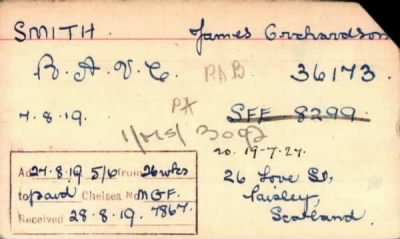 SMITH. James Orchardson
R.A.V.C. PAB 36173.
7.8.19. PA SEE 8299.
20.19-7-27.
Ad 27.8.19 5/6 from 26 wks
to paid Chelsea No MGF.
Received 28.8.19. 7867.
26 Love St,
Paisley,
Scotland.